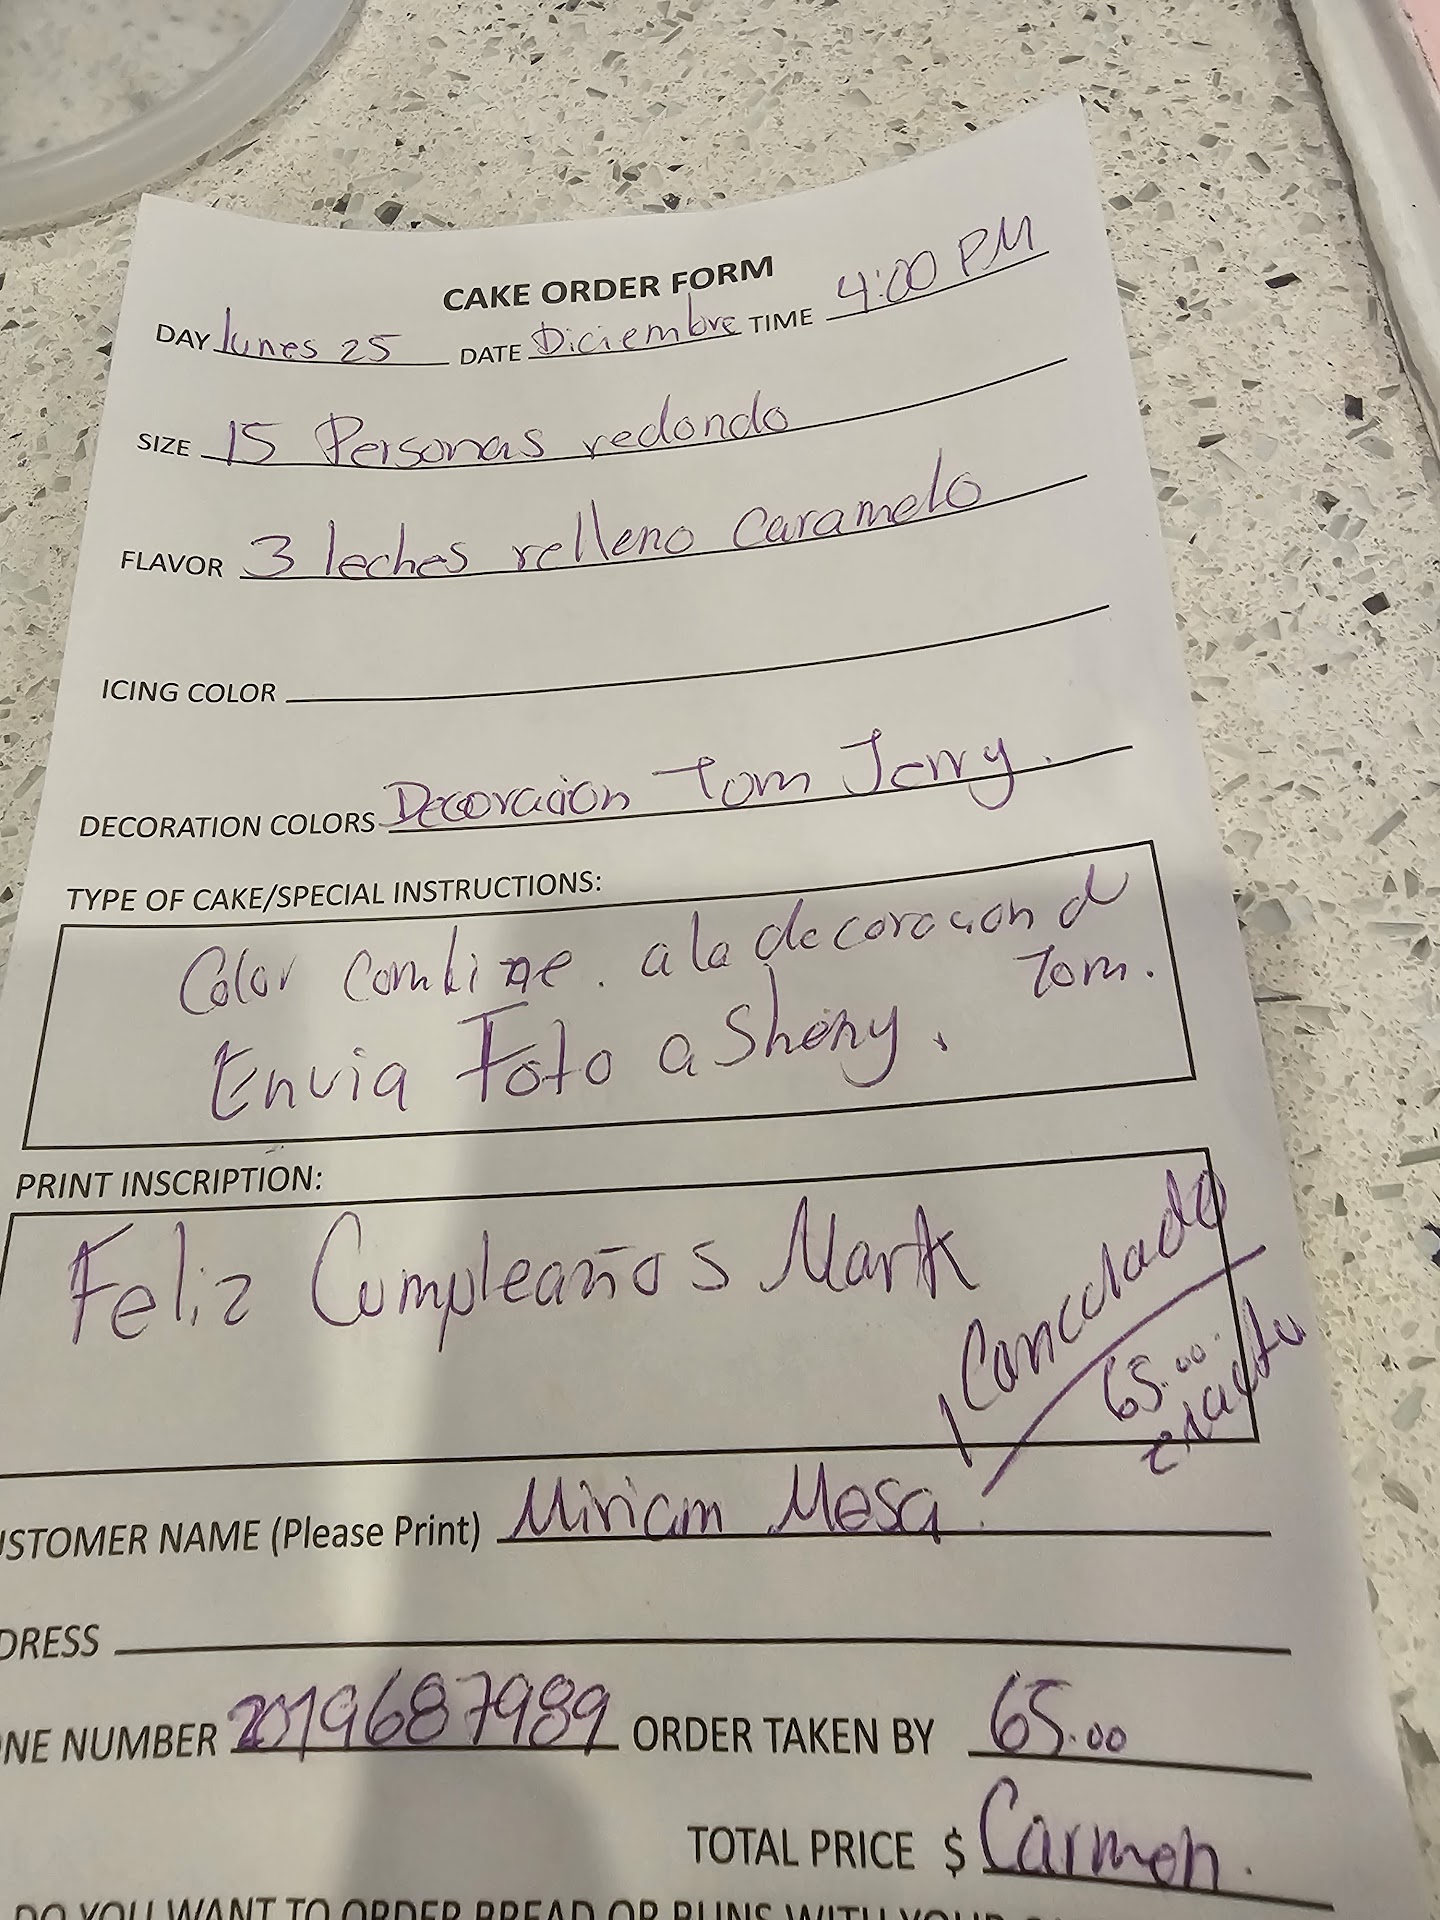 CAKE ORDER FORM
DAY lunes 25 DATE Diciembre TIME 4:00 PM
SIZE 15 Personas redondo
FLAVOR 3 leches relleno Caramelo
ICING COLOR
DECORATION COLORS Decoracion Tom Jerry.
TYPE OF CAKE/SPECIAL INSTRUCTIONS:
Color Combine. a la decoracion d
Tom.
Envia Foto a Shony.
PRINT INSCRIPTION:
Feliz Cumpleaños Mark
Cancelado
65.00
exacto
USTOMER NAME (Please Print) Miriam Mesa.
DRESS
NE NUMBER 2019687989 ORDER TAKEN BY 65.00
TOTAL PRICE $ Carmen.
DO YOU WANT TO ORDER BREAD OR BUNS WITH YOUR